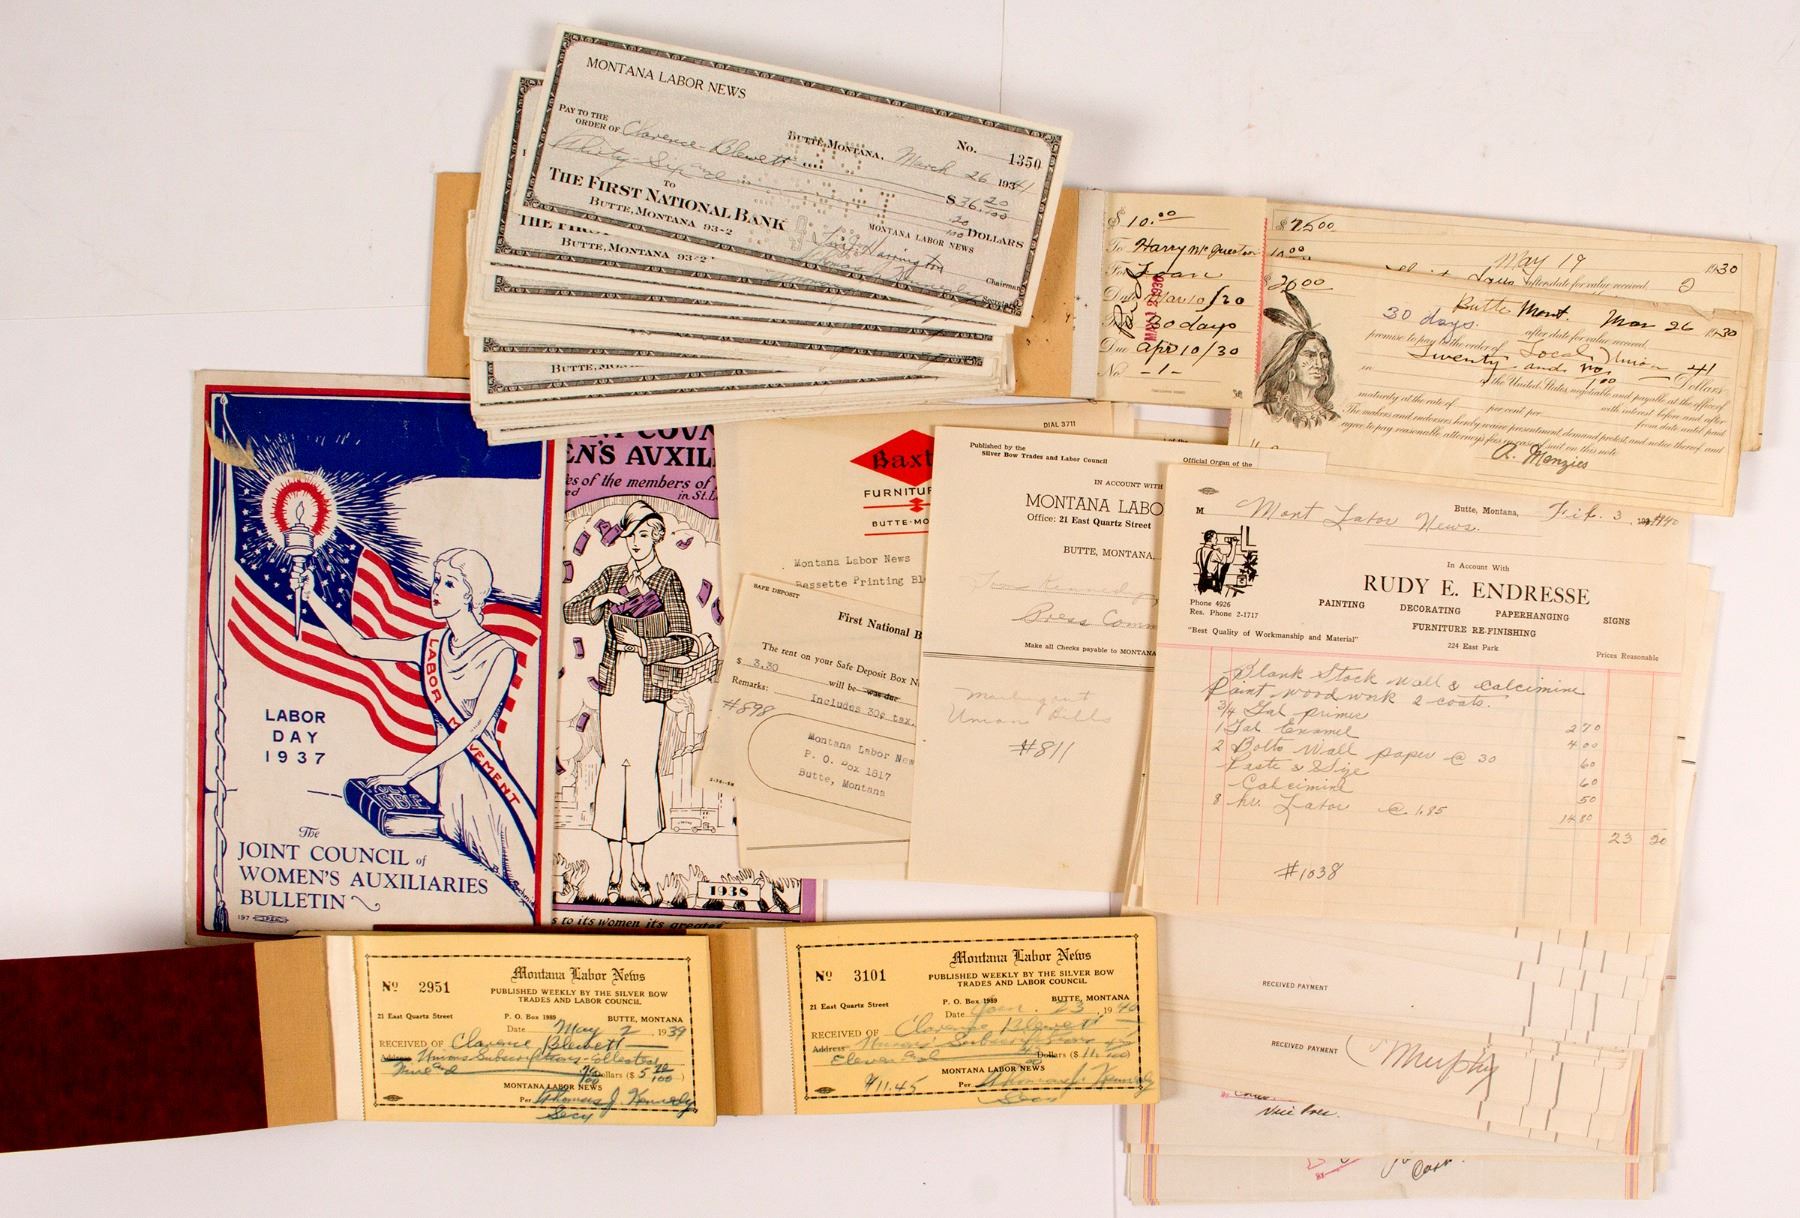 MONTANA LABOR NEWS
BUTTE, MONTANA, March 26 1941
No. 1350
PAY TO THE
ORDER OF Clarence Blewett
$ 36.20/100
Thirty-Six and 20/100 DOLLARS
TO
THE FIRST NATIONAL BANK
BUTTE, MONTANA 93-2
MONTANA LABOR NEWS
Harrington
Chairman
Secretary
BUTTE, MONTANA 93-2
$ 10.00
To Harry McQueston
For Loan
Date Mar 10/30
Time 30 days
Due Apr 10/30
No -1-
Paid
MAY 12 1930
$ 25.00
May 19 1930
after date for value received
$ 20.00
Butte Mont. Mar 26 1930
30 days after date for value received
promise to pay to the order of Local Union 41
Twenty and no/100 Dollars
in the United States, negotiable and payable at the office of
maturity at the rate of per cent per with interest before and after
from date until paid
The makers and endorsers hereby waive presentment, demand, protest, and notice thereof and
agree to pay reasonable attorneys fees in case of suit on this note
A. Menzies
LABOR MOVEMENT
HOLY BIBLE
LABOR
DAY
1937
The
JOINT COUNCIL of
WOMEN'S AUXILIARIES
BULLETIN
197
NT COUN
EN'S AUXIL
es of the members of
ed in St. L
1938
s to its women its greates
DIAL 3711
Baxt
FURNITUR
BUTTE-MO
Montana Labor News
Bessette Printing Bl
SAFE DEPOSIT
First National B
The rent on your Safe Deposit Box N
$ 3.30 will be was due
Remarks: Includes 30¢ tax.
#898
Montana Labor New
P. O. Box 1817
Butte, Montana
Published by the
Silver Bow Trades and Labor Council
Official Organ of the
IN ACCOUNT WITH
MONTANA LABO
Office: 21 East Quartz Street
BUTTE, MONTANA,
Tom Kennedy,
Press Comm
Make all Checks payable to MONTANA
Union Bills
#811
M Mont Labor News.
Butte, Montana, Feb. 3, 1940
In Account With
RUDY E. ENDRESSE
PAINTING DECORATING PAPERHANGING SIGNS
FURNITURE RE-FINISHING
Phone 4926
Res. Phone 2-1717
"Best Quality of Workmanship and Material"
224 East Park
Prices Reasonable
Blank Stock Wall & Calcimine
Paint woodwork 2 coats.
3/4 Gal primer 2 70
1 Gal Enamel 4 00
2 Bolts Wall paper @ 30 60
Paste & Size 60
Calcimine 50
8 hr. Labor @ 1.85 14 80
23 20
#1038
RECEIVED PAYMENT
RECEIVED PAYMENT
Murphy
Montana Labor News
No 2951
PUBLISHED WEEKLY BY THE SILVER BOW
TRADES AND LABOR COUNCIL
21 East Quartz Street P. O. Box 1989 BUTTE, MONTANA
Date May 2, 1939
RECEIVED OF Clarence Blewett
Address Unions Subscriptions-Collected
Five and 70/100 Dollars ($ 5 70/100)
MONTANA LABOR NEWS
Per Thomas J. Kennerly
Secy
Montana Labor News
No 3101
PUBLISHED WEEKLY BY THE SILVER BOW
TRADES AND LABOR COUNCIL
21 East Quartz Street P. O. Box 1989 BUTTE, MONTANA
Date Jan. 23, 1940
RECEIVED OF Clarence Blewett
Address Unions' Subscriptions
Eleven and 45/100 Dollars ($ 11. 45/100)
MONTANA LABOR NEWS
$11.45 Per Thomas J. Kennerly
Secy